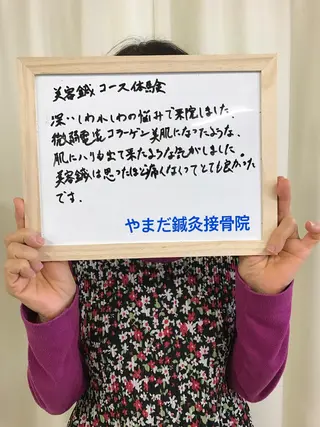 美容鍼コース体験
深いしわしわの悩みで来院しました。
微弱電流コラーゲン美肌になったような、
肌にハリも出て来たような気がしました
美容鍼は思ったほど痛くなくってとても良かった
です.
やまだ鍼灸接骨院